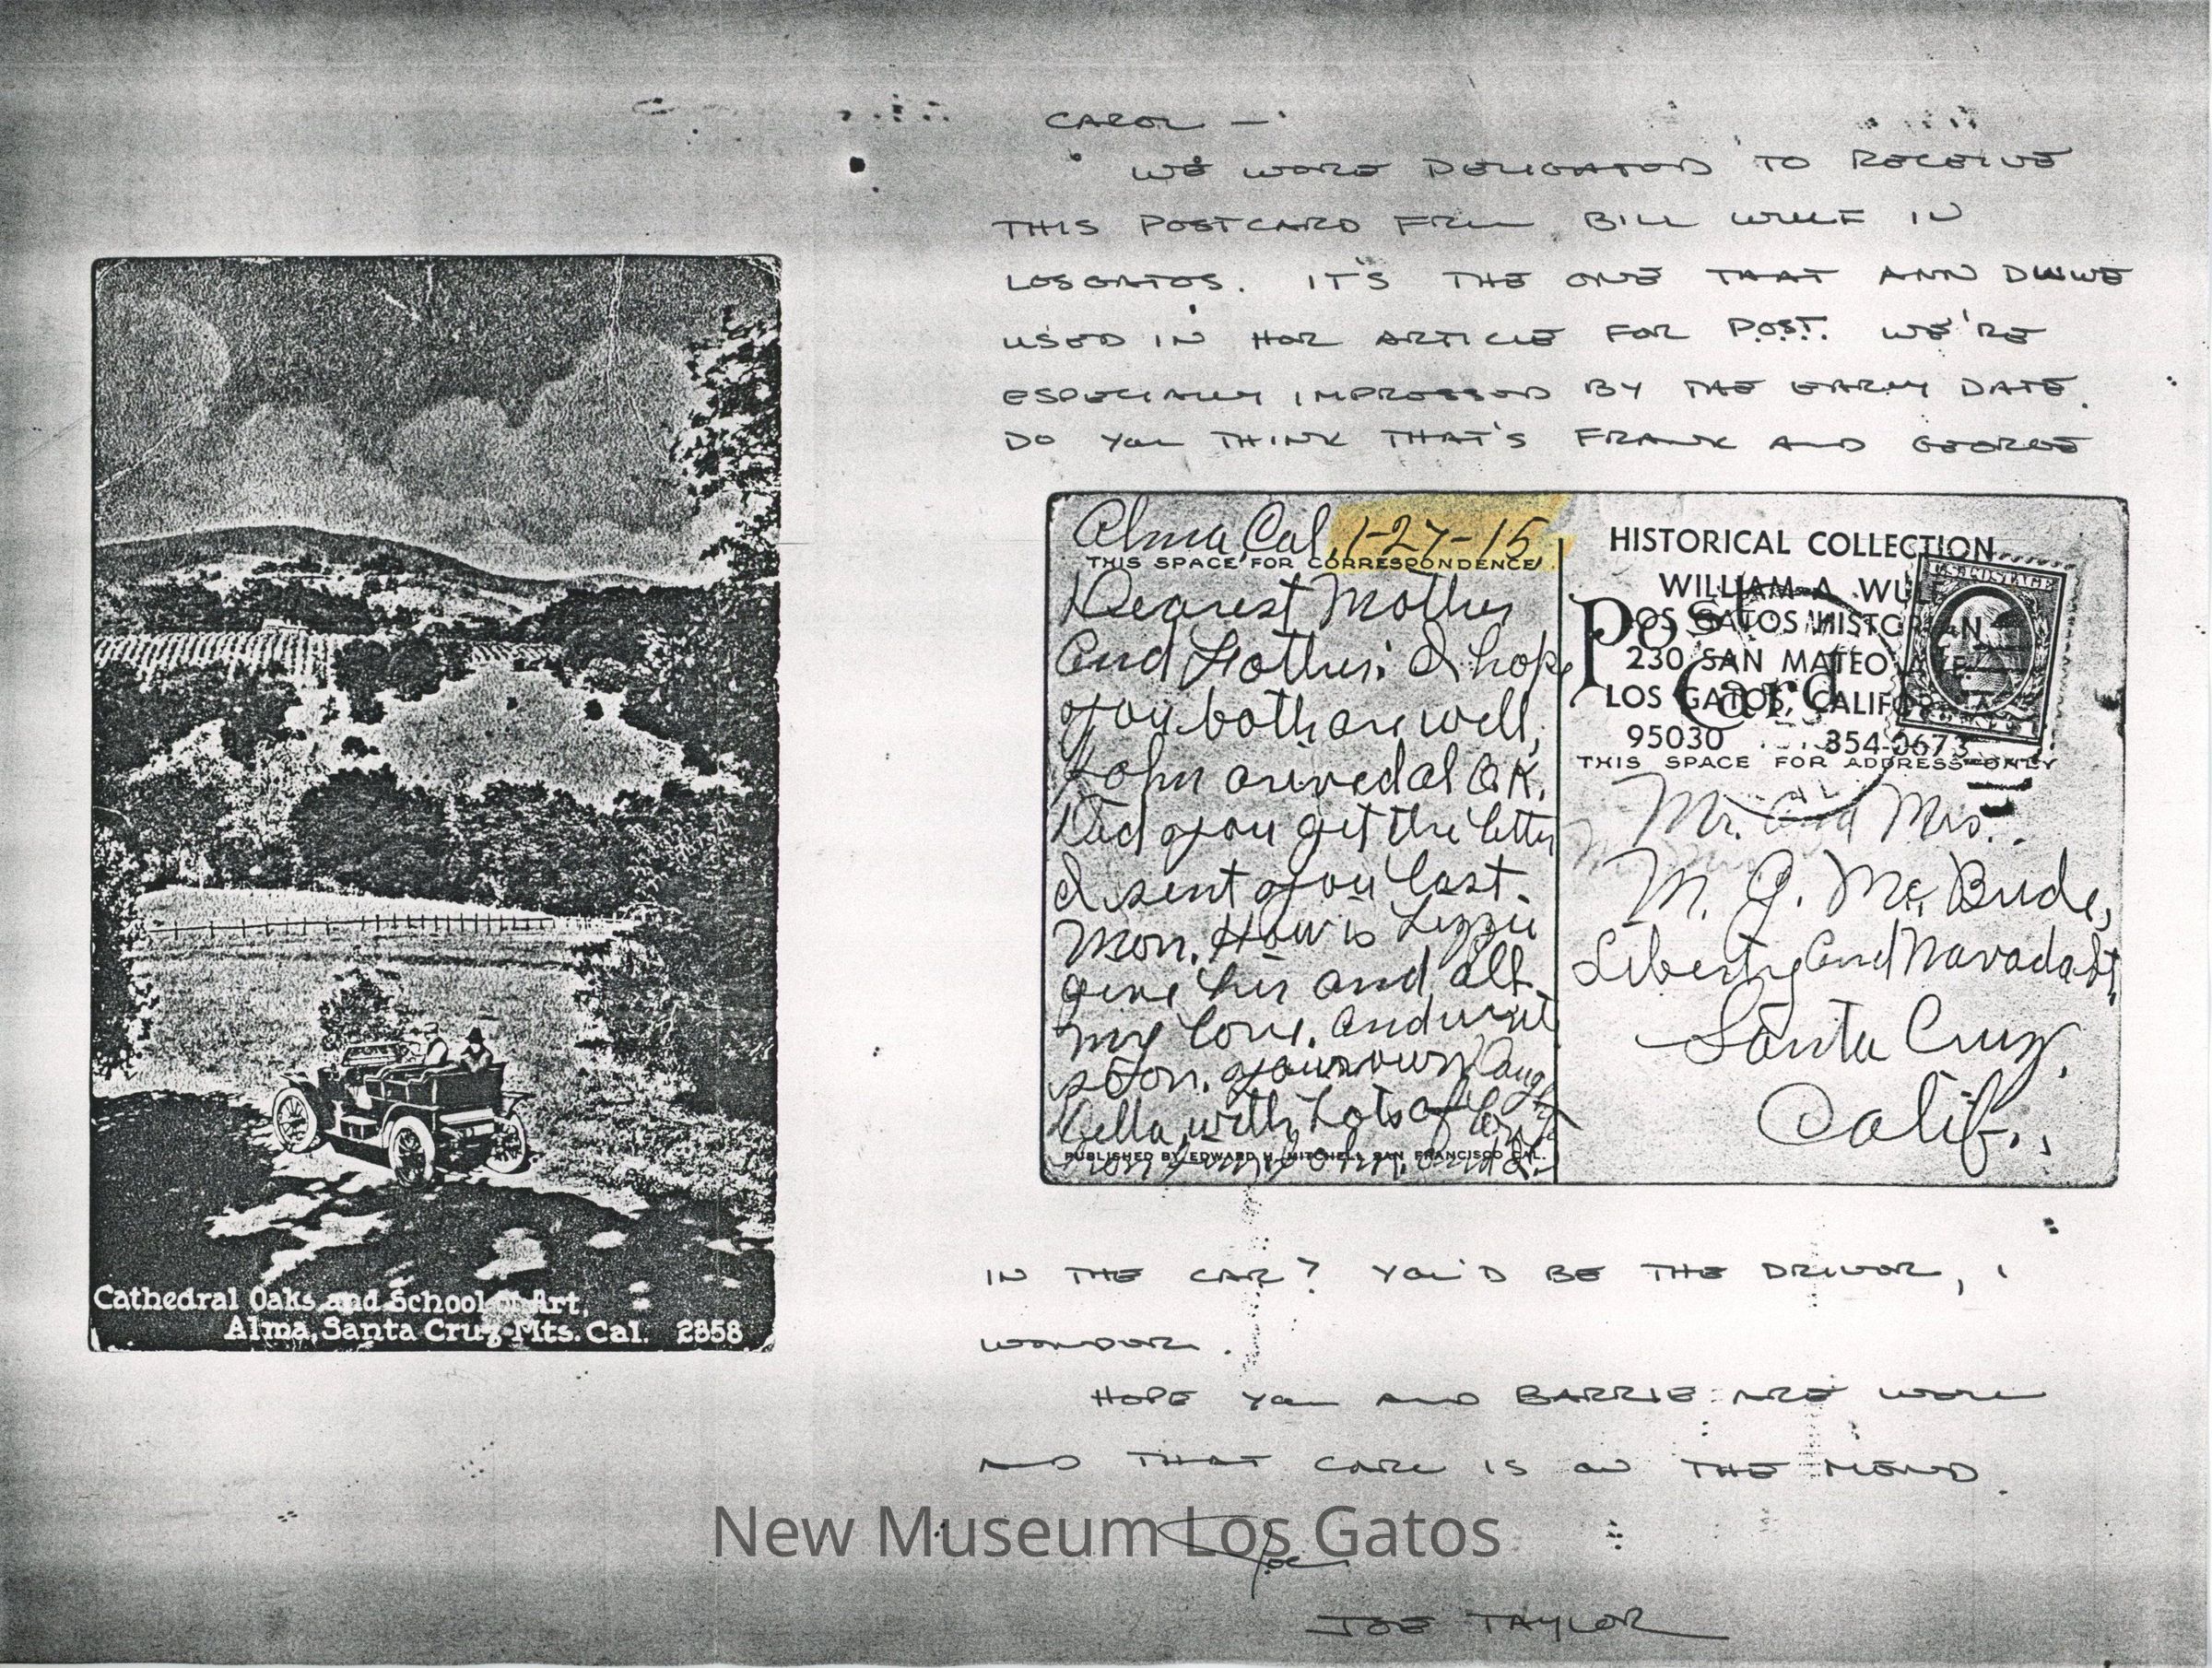 CAROL —
WE WERE DELIGHTED TO RECEIVE
THIS POSTCARD FROM BILL WULF IN
LOS GATOS. IT'S THE ONE THAT ANN
USED IN HER ARTICLE FOR POST. WE'RE
ESPECIALLY IMPRESSED BY THE EARLY DATE.
DO YOU THINK THAT'S FRANK AND GEORGE
Alma Cal, 1-27-15
THIS SPACE FOR CORRESPONDENCE
Dearest Mother
and Father: I hope
you both are well,
John arived al O.K.
Did you get the letter
I sent you last.
Mon. How is Lizzie
give her and all
my love. and write
soon. your own
Della with Lots of
PUBLISHED BY EDWARD H. MITCHELL SAN FRANCISCO CAL.
HISTORICAL COLLECTION
WILLIAM A. WULF
LOS GATOS HISTORIAN
230 SAN MATEO AVE.
LOS GATOS, CALIFORNIA
95030 354-0673
Post Card
U.S. POSTAGE
THIS SPACE FOR ADDRESS ONLY
Mr. and Mrs.
M. J. McBride,
Liberty and Navada St.
Santa Cruz,
Calif.,
IN THE CAR? YOU'D BE THE DRIVER, I
WONDER.
HOPE YOU AND BARRIE ARE WELL
AND THAT CARL IS ON THE MEND.
Joe
JOE TAYLOR
Cathedral Oaks and School of Art,
Alma, Santa Cruz Mts. Cal. 2858
New Museum Los Gatos